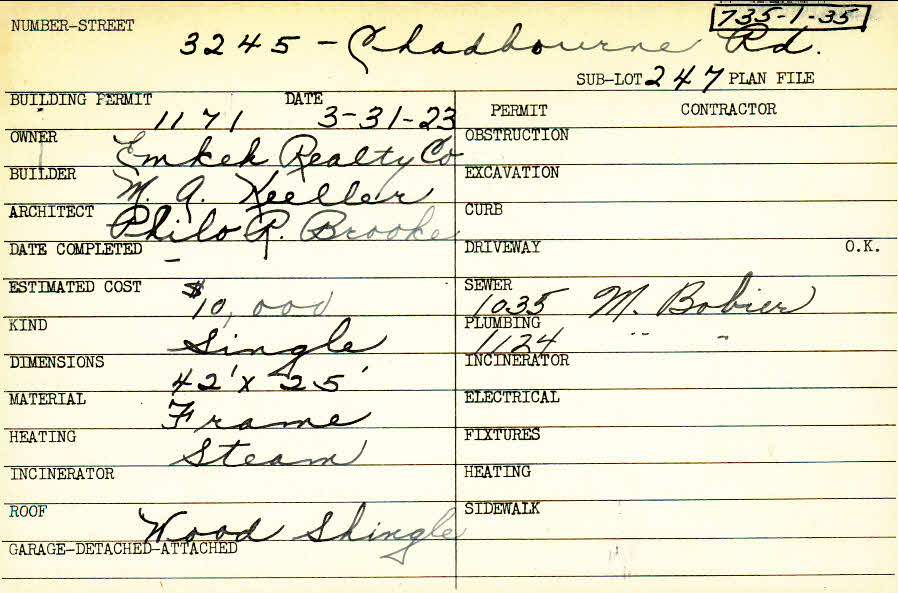 735-1-35
NUMBER-STREET 3245 - Chadbourne Rd.
SUB-LOT 247 PLAN FILE
BUILDING PERMIT 1171 DATE 3-31-23
OWNER Emkek Realty Co
BUILDER M. A. Keeller
ARCHITECT Philo R. Brooke
DATE COMPLETED -
ESTIMATED COST $10,000
KIND Single
DIMENSIONS 42' x 25'
MATERIAL Frame
HEATING Steam
INCINERATOR
ROOF Wood Shingle
GARAGE-DETACHED-ATTACHED
PERMIT CONTRACTOR
OBSTRUCTION
EXCAVATION
CURB
DRIVEWAY O.K.
SEWER 1035 M. Bobier
PLUMBING 1124 " "
INCINERATOR
ELECTRICAL
FIXTURES
HEATING
SIDEWALK